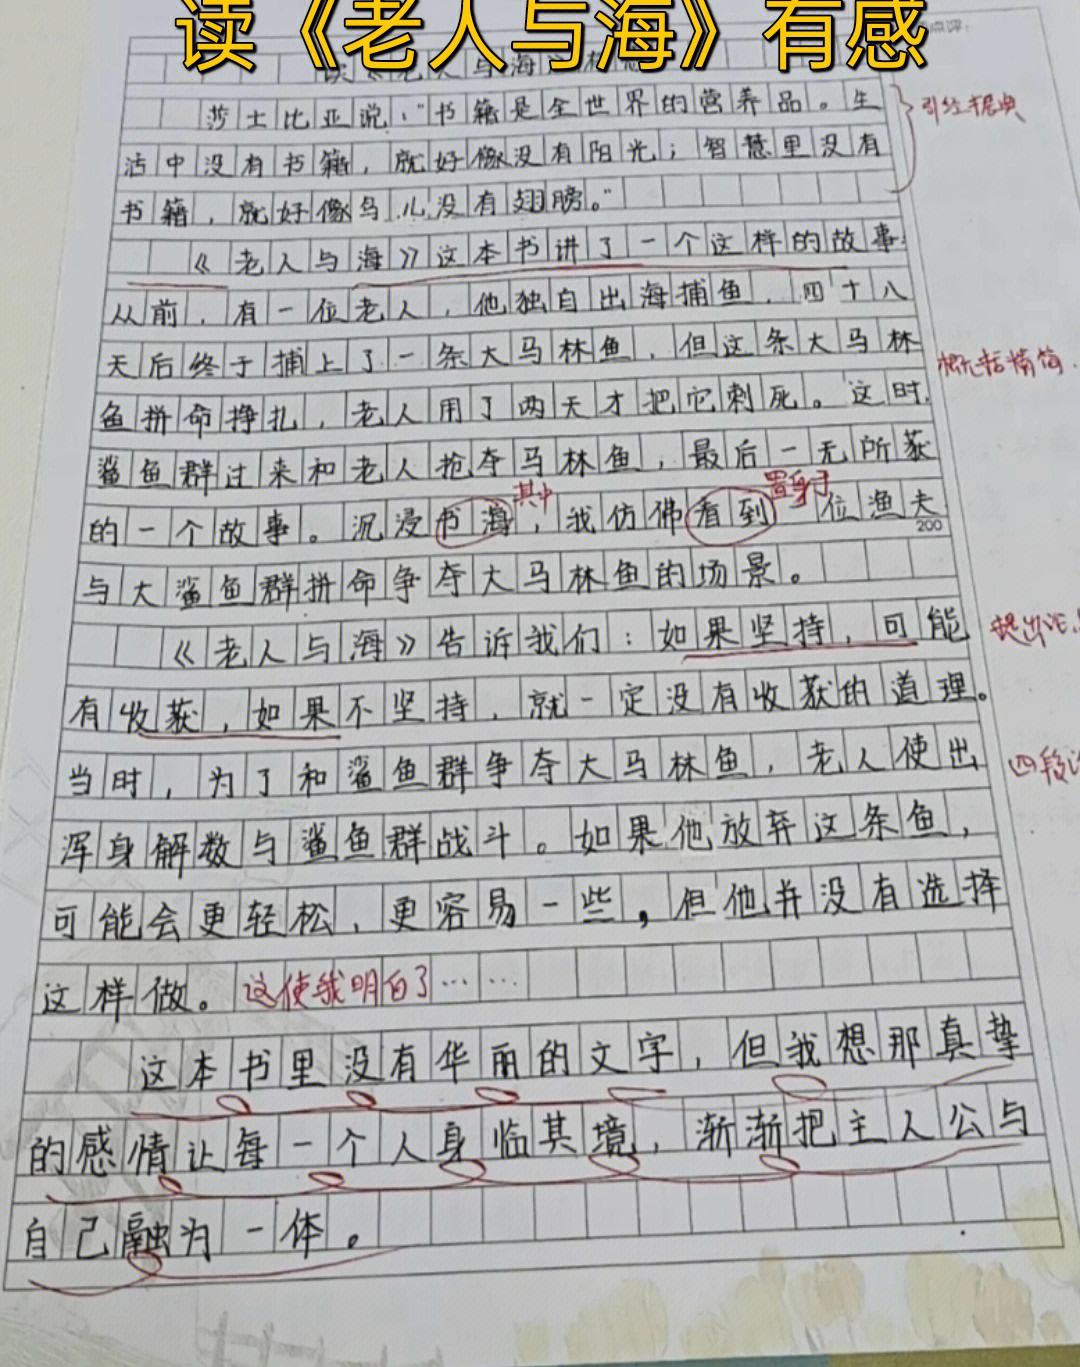 读《老人与海》有感
点评:
读《老人与海》有感
莎士比亚说："书籍是全世界的营养品。生
活中没有书籍，就好像没有阳光；智慧里没有
书籍，就好像鸟儿没有翅膀。"
引经据典
《老人与海》这本书讲了一个这样的故事:
从前，有一位老人，他独自出海捕鱼，四十八
天后终于捕上了一条大马林鱼，但这条大马林
概括精简.
鱼拼命挣扎，老人用了两天才把它刺死。这时，
鲨鱼群过来和老人抢夺马林鱼，最后一无所获
其中 置身于
的一个故事。沉浸书海，我仿佛看到一位渔夫
200
与大鲨鱼群拼命争夺大马林鱼的场景。
《老人与海》告诉我们：如果坚持，可能
提出
有收获，如果不坚持，就一定没有收获的道理。
当时，为了和鲨鱼群争夺大马林鱼，老人使出
四段
浑身解数与鲨鱼群战斗。如果他放弃这条鱼，
可能会更轻松，更容易一些，但他并没有选择
这样做。这使我明白了……
这本书里没有华丽的文字，但我想那真挚
的感情让每一个人身临其境，渐渐把主人公与
自己融为一体。